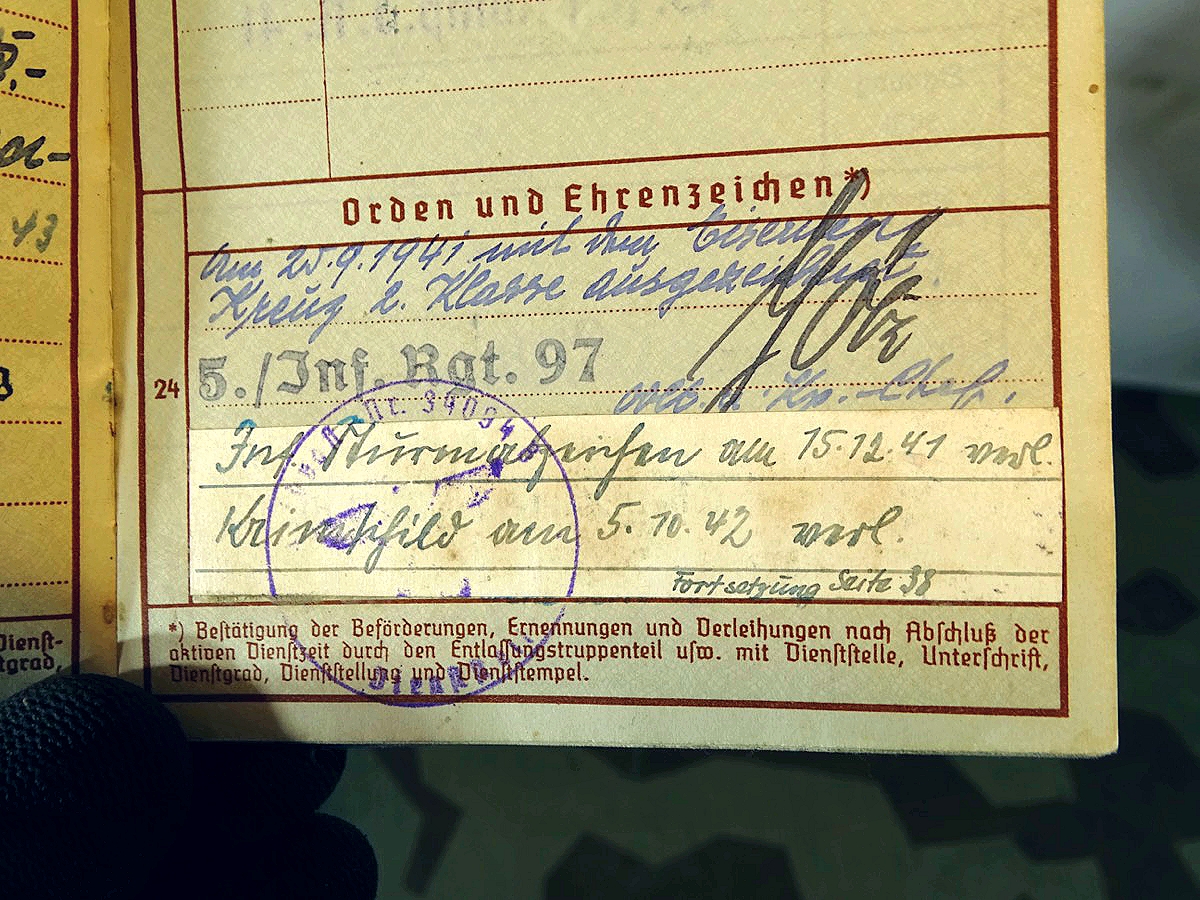 43
Orden und Ehrenzeichen*)
Am 25.9.1941 mit dem Eisernen
Kreuz 2. Klasse ausgezeichnet.
5./Inf. Rgt. 97
u. Kp.-Chef.
24
Inf Sturmabzeichen am 15.12.41 verl.
Krimschild am 5.10.42 verl.
Fortsetzung Seite 38
*) Bestätigung der Beförderungen, Ernennungen und Verleihungen nach Abschluß der
aktiven Dienstzeit durch den Entlassungstruppenteil usw. mit Dienststelle, Unterschrift,
Dienstgrad, Dienststellung und Dienststempel.
Nr. 39094
Dienst-
tgrad,